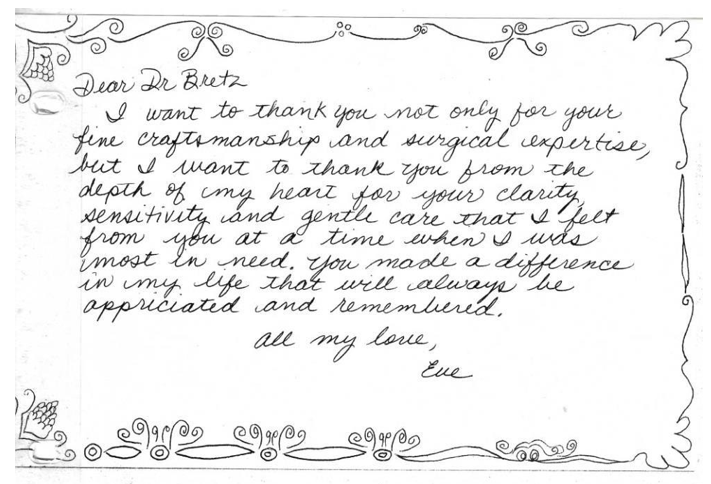 Dear Dr Bretz
I want to thank you not only for your
fine craftsmanship and surgical expertise,
but I want to thank you from the
depth of my heart for your clarity,
sensitivity and gentle care that I felt
from you at a time when I was
most in need. You made a difference
in my life that will always be
appriciated and remembered.
All my love,
Eve